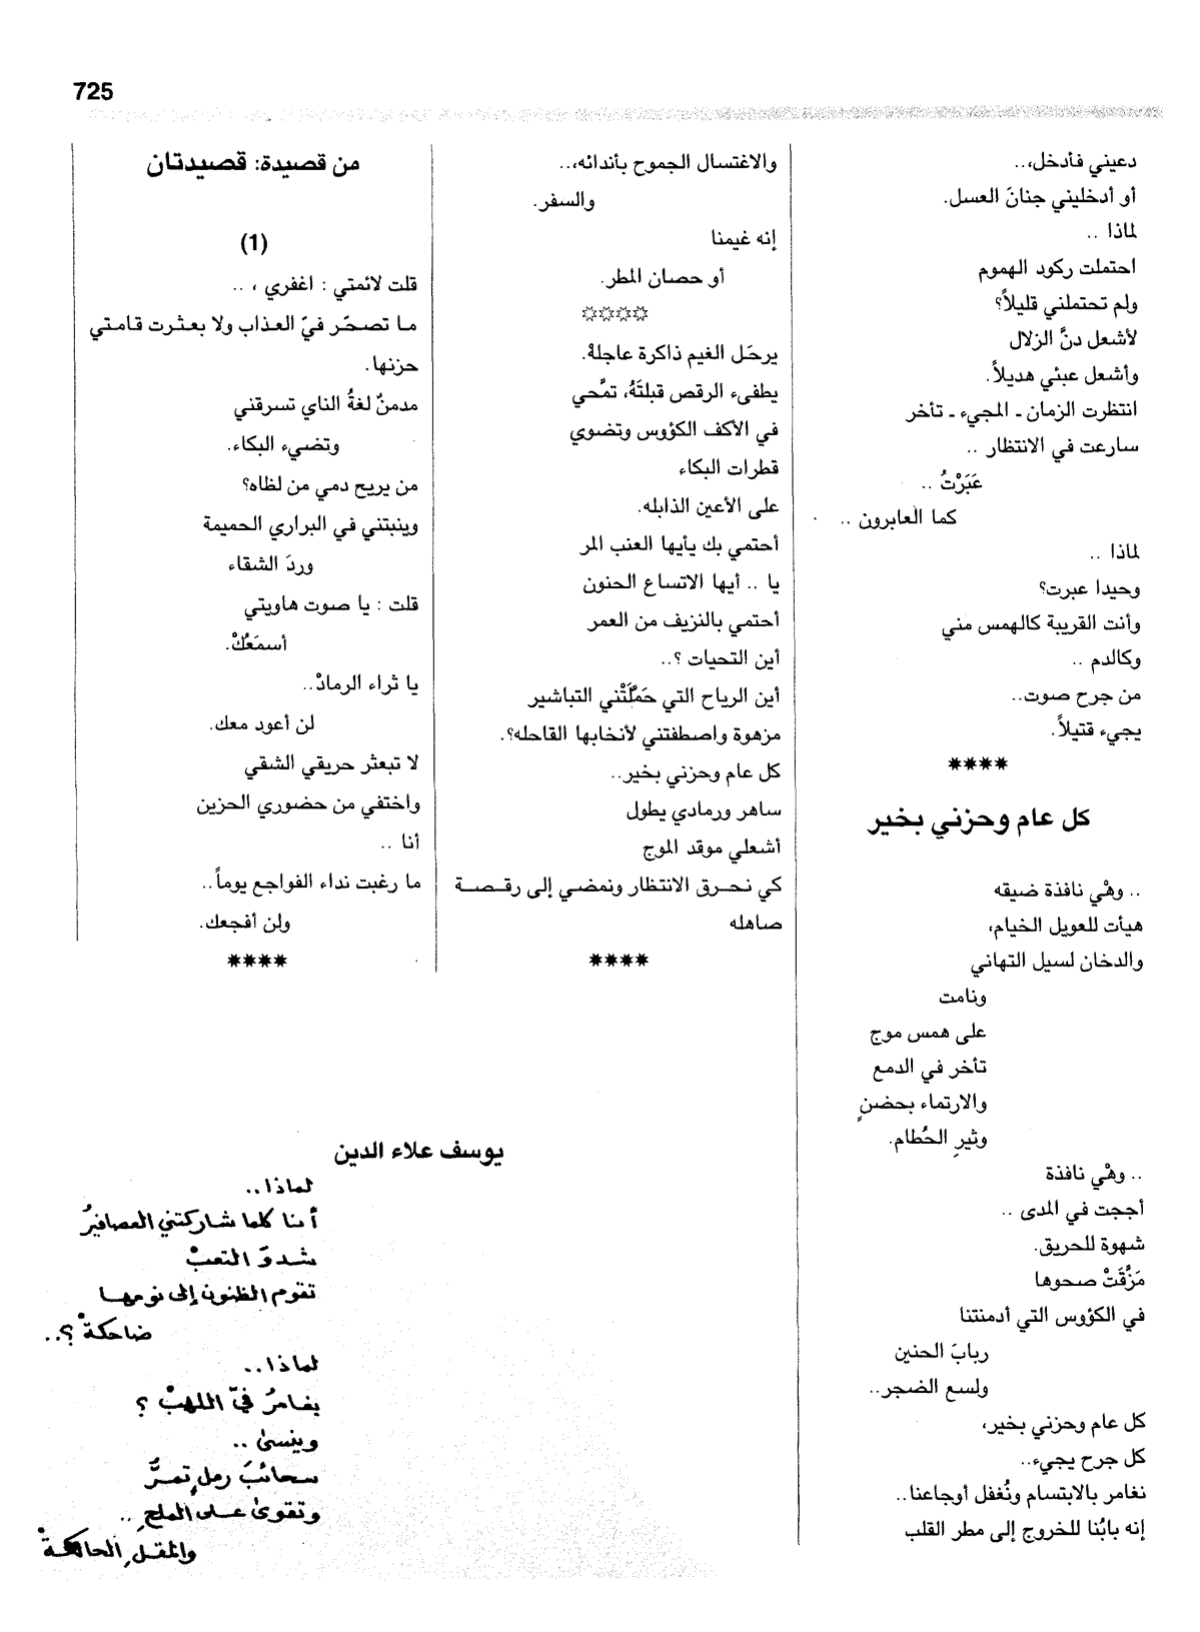 725
دعيني فأدخل،..
أو أدخليني جنانَ العسل.
لماذا ..
احتملت ركود الهموم
ولم تحتملني قليلاً؟
لأشعل دنَّ الزلال
وأشعل عبئي هديلاً.
انتظرت الزمان ـ المجيء ـ تأخر
سارعت في الانتظار ..
عَبَرْتُ ..
كما العابرون ..
لماذا ..
وحيدا عبرت؟
وأنت القريبة كالهمس مني
وكالدم ..
من جرح صوت..
يجيء قتيلاً.
****
كل عام وحزني بخير
.. وهْي نافذة ضيقه
هيأت للعويل الخيام،
والدخان لسيل التهاني
ونامت
على همس موج
تأخر في الدمع
والارتماء بحضنٍ
وثيرِ الحُطام.
.. وهْي نافذة
أججت في المدى ..
شهوة للحريق.
مَزَّقَتْ صحوها
في الكؤوس التي أدمنتنا
ربابَ الحنين
ولسع الضجر..
كل عام وحزني بخير،
كل جرح يجيء..
نغامر بالابتسام ونُغفل أوجاعنا..
إنه بابُنا للخروج إلى مطر القلب
والاغتسال الجموح بأندائه،..
والسفر.
إنه غيمنا
أو حصان المطر.
☼☼☼☼
يرحَل الغيم ذاكرة عاجلهْ.
يطفىء الرقص قبلتَهُ، تمَّحي
في الأكف الكؤوس وتضوي
قطرات البكاء
على الأعين الذابله.
أحتمي بك يأيها العنب المر
يا .. أيها الاتساع الحنون
أحتمي بالنزيف من العمر
أين التحيات ؟..
أين الرياح التي حَمَّلَتْني التباشير
مزهوة واصطفتني لأنخابها القاحله؟.
كل عام وحزني بخير..
ساهر ورمادي يطول
أشعلي موقد الموج
كي نحرق الانتظار ونمضي إلى رقصة
صاهله
****
من قصيدة: قصيدتان
(1)
قلت لائمتي : اغفري ، ..
ما تصحّر فيّ العذاب ولا بعثرت قامتي
حزنها.
مدمنٌ لغةُ الناي تسرقني
وتضيء البكاء.
من يريح دمي من لظاه؟
وينبتني في البراري الحميمة
وردَ الشقاء
قلت : يا صوت هاويتي
أسمَعُكْ.
يا ثراء الرمادْ..
لن أعود معك.
لا تبعثر حريقي الشقي
واختفي من حضوري الحزين
أنا ..
ما رغبت نداء الفواجع يوماً..
ولن أفجعك.
****
يوسف علاء الدين
لماذا..
أنا كلما شاركتني العصافيرُ
شدوَ التعبْ
تقوم الظنون إلى نومها
ضاحكةْ ؟..
لماذا..
يغامرُ فيّ اللهبْ ؟
وينسىٰ ..
سحائبَ رملٍ تمرُّ
وتقوىٰ على الملحِ ..
والمقلِ الحالكةْ